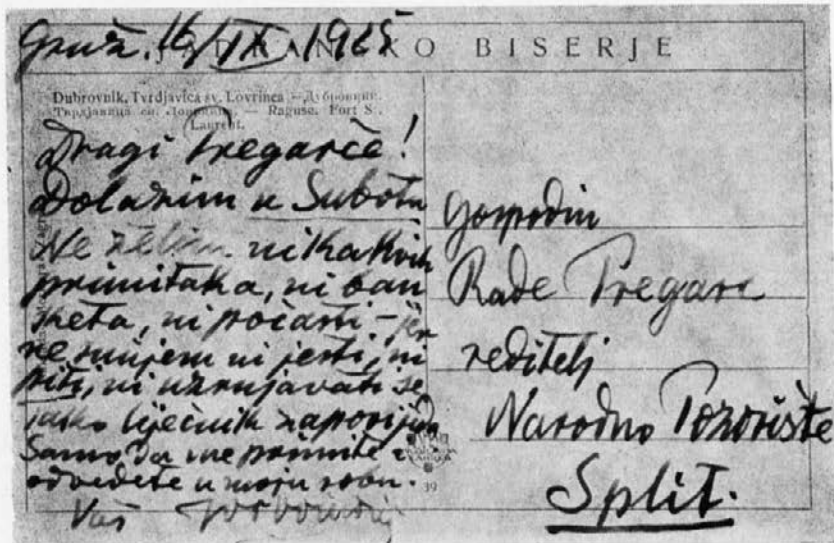 Gruž. 16/IX 1925
JADRANSKO BISERJE
Dubrovnik, Tvrdjavica sv. Lovrinca — Дубровник.
Тврдјавица св. Ловринца. — Raguse. Fort S.
Laurent.
Dragi Tregarče!
Dolazim u Subotu
Ne želim nikakvih
primitaka, ni ban
keta, ni počasti – jer
ne smijem ni jesti, ni
piti, ni uzrujavati se
tako liječnik zapovijeda
Samo da me primite i
odvedete u moju sobu.
Vaš
39
Gospodin
Rade Pregarc
reditelj
Narodno Pozorište
Split.